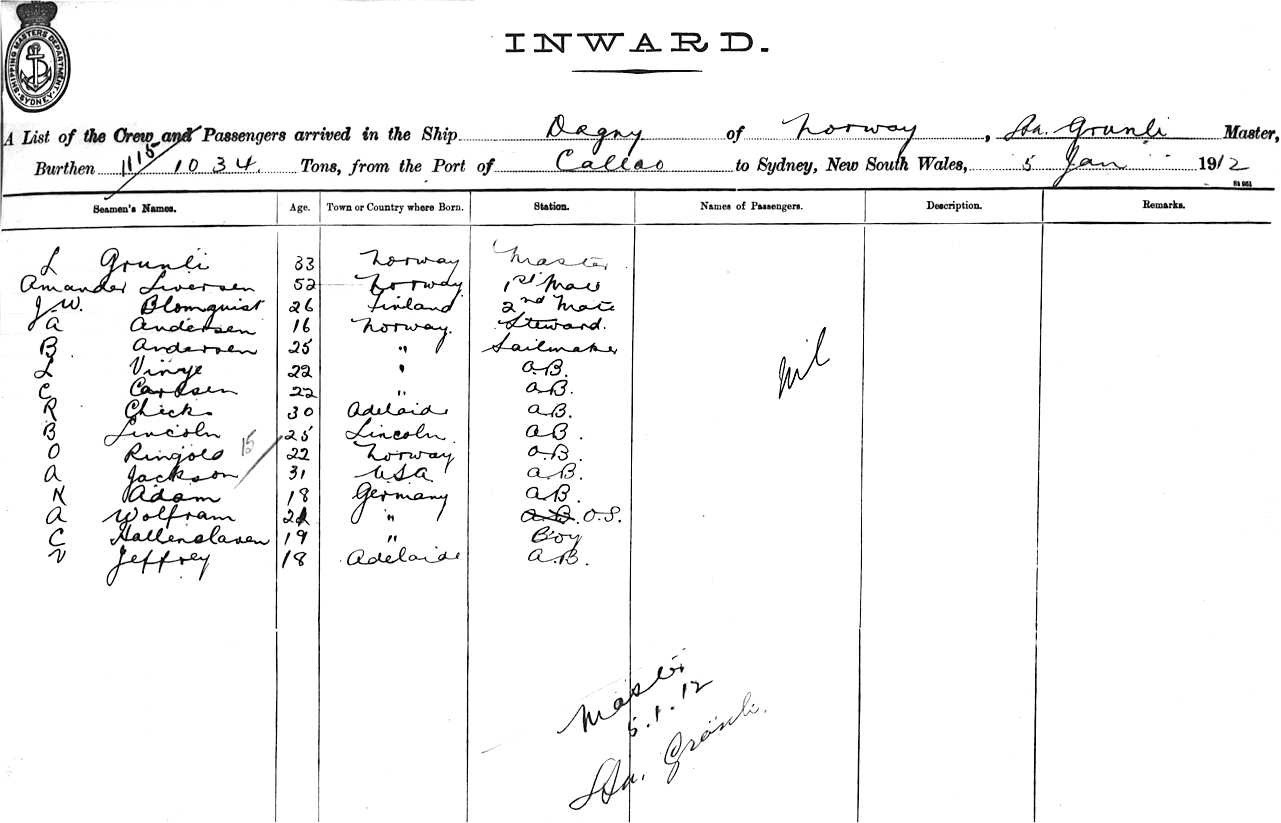 SHIPPING MASTERS DEPARTMENT SYDNEY
INWARD.
A List of the Crew and Passengers arrived in the Ship Dagny of Norway, Grunli Master,
Burthen 1115/1034. Tons, from the Port of Callao to Sydney, New South Wales, 5 Jan 1912
Seamen's Names. Age. Town or Country where Born. Station. Names of Passengers. Description. Remarks.
L Grunli 33 Norway Master
Amander Liversen 52 Norway 1st Mate
J.W. Blomquist 26 Finland 2nd Mate
A Andersen 16 Norway. Steward.
B. Andersen 25 " Sailmaker
L Vinje 22 " A.B.
C Carlsen 22 " A.B.
nil
R Chick 30 Adelaide A.B.
B Lincoln 25 Lincoln A.B.
15
O Ringold 22 Norway A.B.
A Jackson 31 USA A.B.
K Adam 18 Germany A.B.
A Wolfram " A.B. O.S.
C 19 " Boy
V Jeffrey 18 Adelaide A.B.
Master
5.1.12